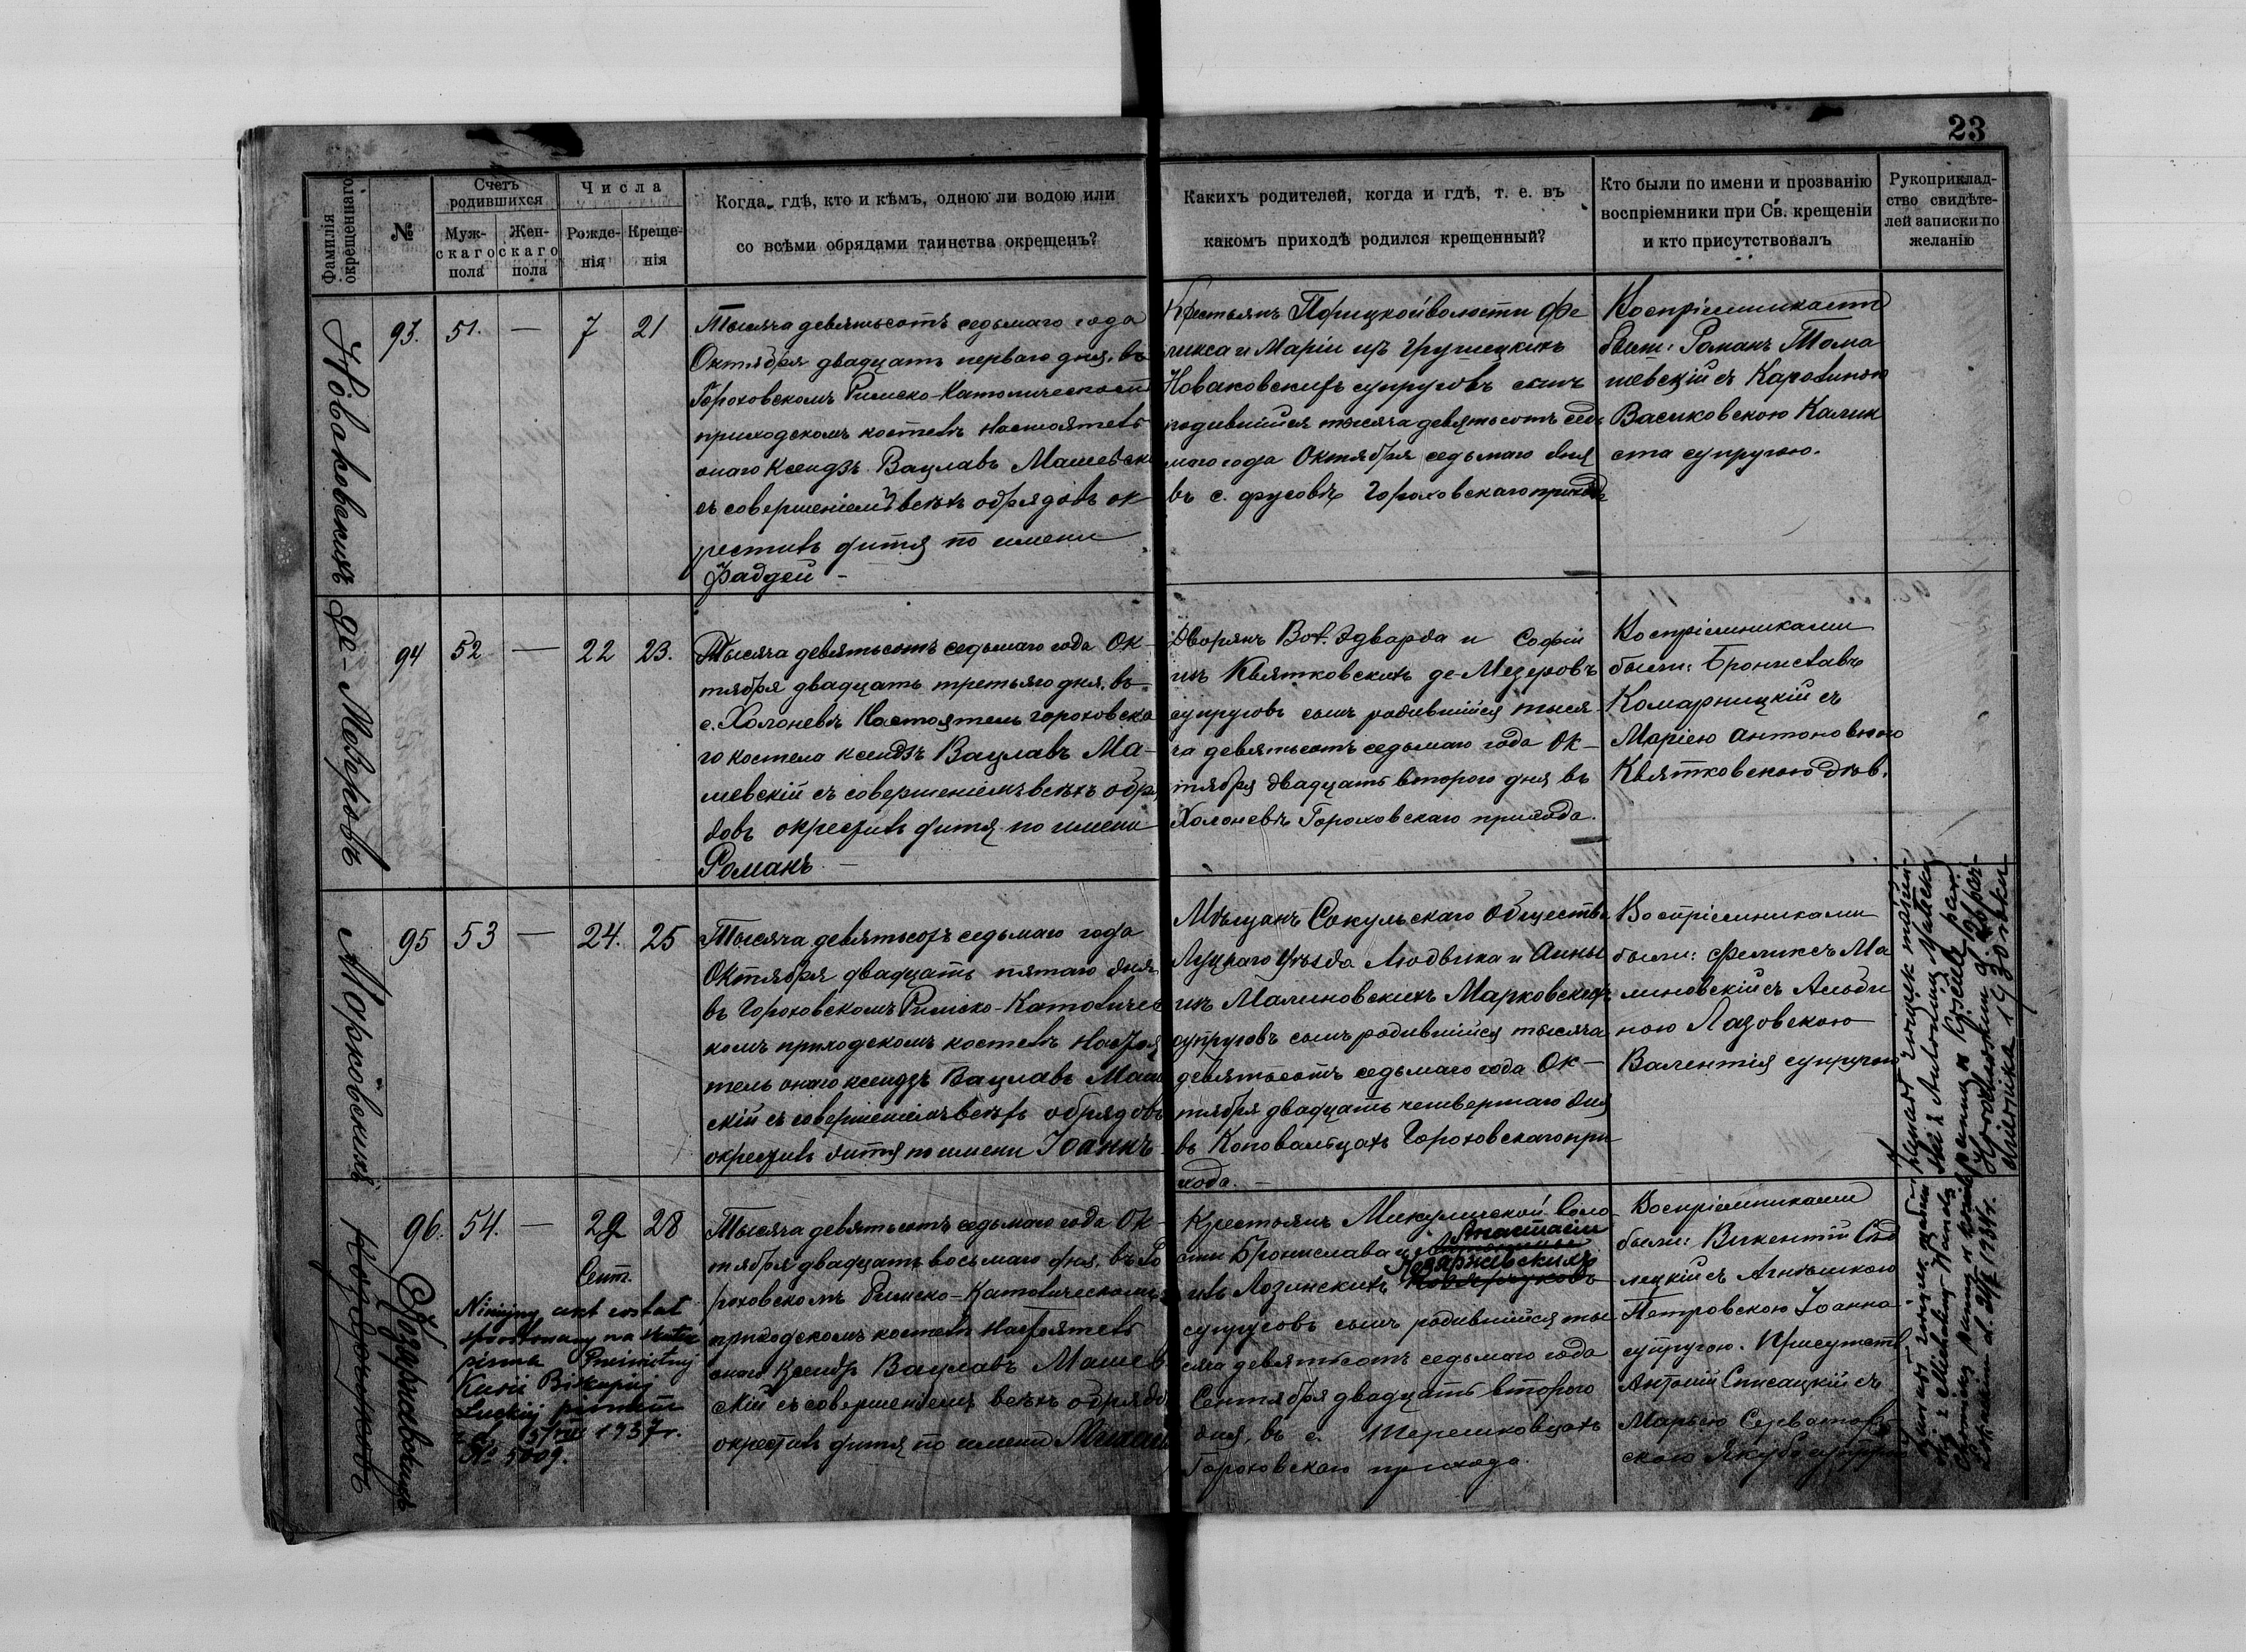 23
Фамилія окрещеннаго
№
Счетъ родившихся
Мужскаго пола
Женскаго пола
Числа
Рожденія
Крещенія
Когда, гдѣ, кто и кѣмъ, одною ли водою или
со всѣми обрядами таинства окрещенъ?
Какихъ родителей, когда и гдѣ, т. е. въ
какомъ приходѣ родился крещенный?
Кто были по имени и прозванію
воспріемники при Св. крещеніи
и кто присутствовалъ
Рукоприклад-
ство свидѣте-
лей записки по
желанію
Новаковскихъ
93. 51. — 7 21
Тысяча девятьсотъ седьмаго года
Октября двадцать перваго дня, въ
Гороховскомъ Римско-Католическомъ
приходскомъ костелѣ Настоятель
онаго Ксендзъ Вацлавъ Машевскі
съ совершеніемъ всѣхъ обрядовъ ок
рестилъ дитя по имени
Фаддей —
Крестьянъ Порицкой волости Фе
ликса и Маріи изъ Грушецкихъ
Новаковскихъ супруговъ сынъ
родившійся тысяча девятьсотъ седь
маго года Октября седьмаго дня
въ с. Гороховскаго прихода
Воспріемниками
были: Романъ Тома
шевскій съ Каролиною
Васиковскою Калик
ста супругою.
де-Мезеровъ
94 52 — 22 23.
Тысяча девятьсотъ седьмаго года Ок-
тября двадцать третьяго дня, въ
с. Холоневѣ Настоятель Гороховска
го костела ксендзъ Вацлавъ Ма-
шевскій съ совершеніемъ всѣхъ обря
довъ окрестилъ дитя по имени
Романъ —
Дворянъ Эдварда и Софіи
изъ Квятковскихъ де-Мезеровъ
супруговъ сынъ родившійся тыся
ча девятьсотъ седьмаго года Ок-
тября двадцать втораго дня въ
Холоневѣ Гороховскаго прихода.
Воспріемниками
были: Брониславъ
Комарницкій съ
Маріею Антоновною
Квятковскою дѣв.
Марковскій
95 53 — 24. 25
Тысяча девятьсотъ седьмаго года
Октября двадцать пятаго дня
въ Гороховскомъ Римско-Католичес
комъ приходскомъ костелѣ Настоя
тель онаго ксендзъ Вацлавъ Машев
скій съ совершеніемъ всѣхъ обрядовъ
окрестилъ дитя по имени Іоаннъ
Мѣщанъ Сокульскаго Общества
Луцкаго Уѣзда Людвика и Анны
изъ Малиновскихъ Марковскихъ
супруговъ сынъ родившійся тысяча
девятьсотъ седьмаго года Ок-
тября двадцать четвертаго дня
въ Гороховскаго при
хода. —
Воспріемниками
были: Феликсъ Ма
линовскій съ Альби
ною Лазовскою
Валентія супругою
96. 54. — 22 28
Сент.
Тысяча девятьсотъ седьмаго года Ок-
тября двадцать восьмаго дня, въ Го
роховскомъ Римско-Католическомъ
приходскомъ костелѣ Настоятель
онаго Ксендзъ Вацлавъ Машев
скій съ совершеніемъ всѣхъ обрядов
окрестилъ дитя по имени
Niniejszy akt został
sprostowany na skutek
pisma
Kurii Biskupiej
Łuckiej
1937 r.
№ 5009.
Крестьянъ Микуличской воло
сти Бронислава и Анастасіи
изъ Лозинскихъ
супруговъ сынъ родившійся ты
сяча девятьсотъ седьмаго года
Сентября двадцать втораго
дня, въ с.
Гороховскаго прихода.
Воспріемниками
были: Викентій
съ Агнѣшкою
Петровскою Іоанна
супругою. Присутств
Антоній съ